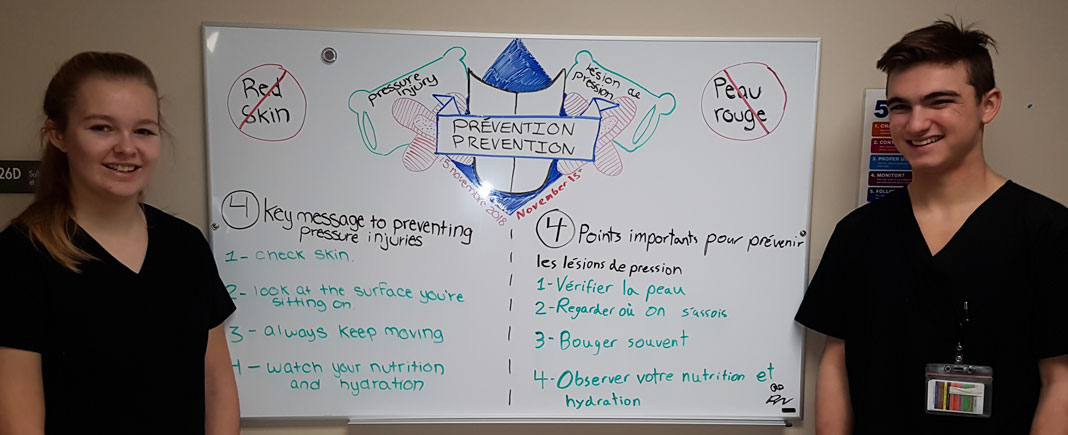 Red
Skin
pressure
injury
lésion de
pression
Peau
rouge
PRÉVENTION
PREVENTION
15 novembre 2018
November 15-
26D
4 Key message to preventing
pressure injuries
1- check skin.
2- look at the surface you're
sitting on
3- always keep moving
4- watch your nutrition
and hydration
4 Points importants pour prévenir
les lésions de pression
1- Vérifier la peau
2- Regarder où on s'assois
3- Bouger souvent
4- Observer votre nutrition et
hydration
5
3. PROPER
4. MONITOR?